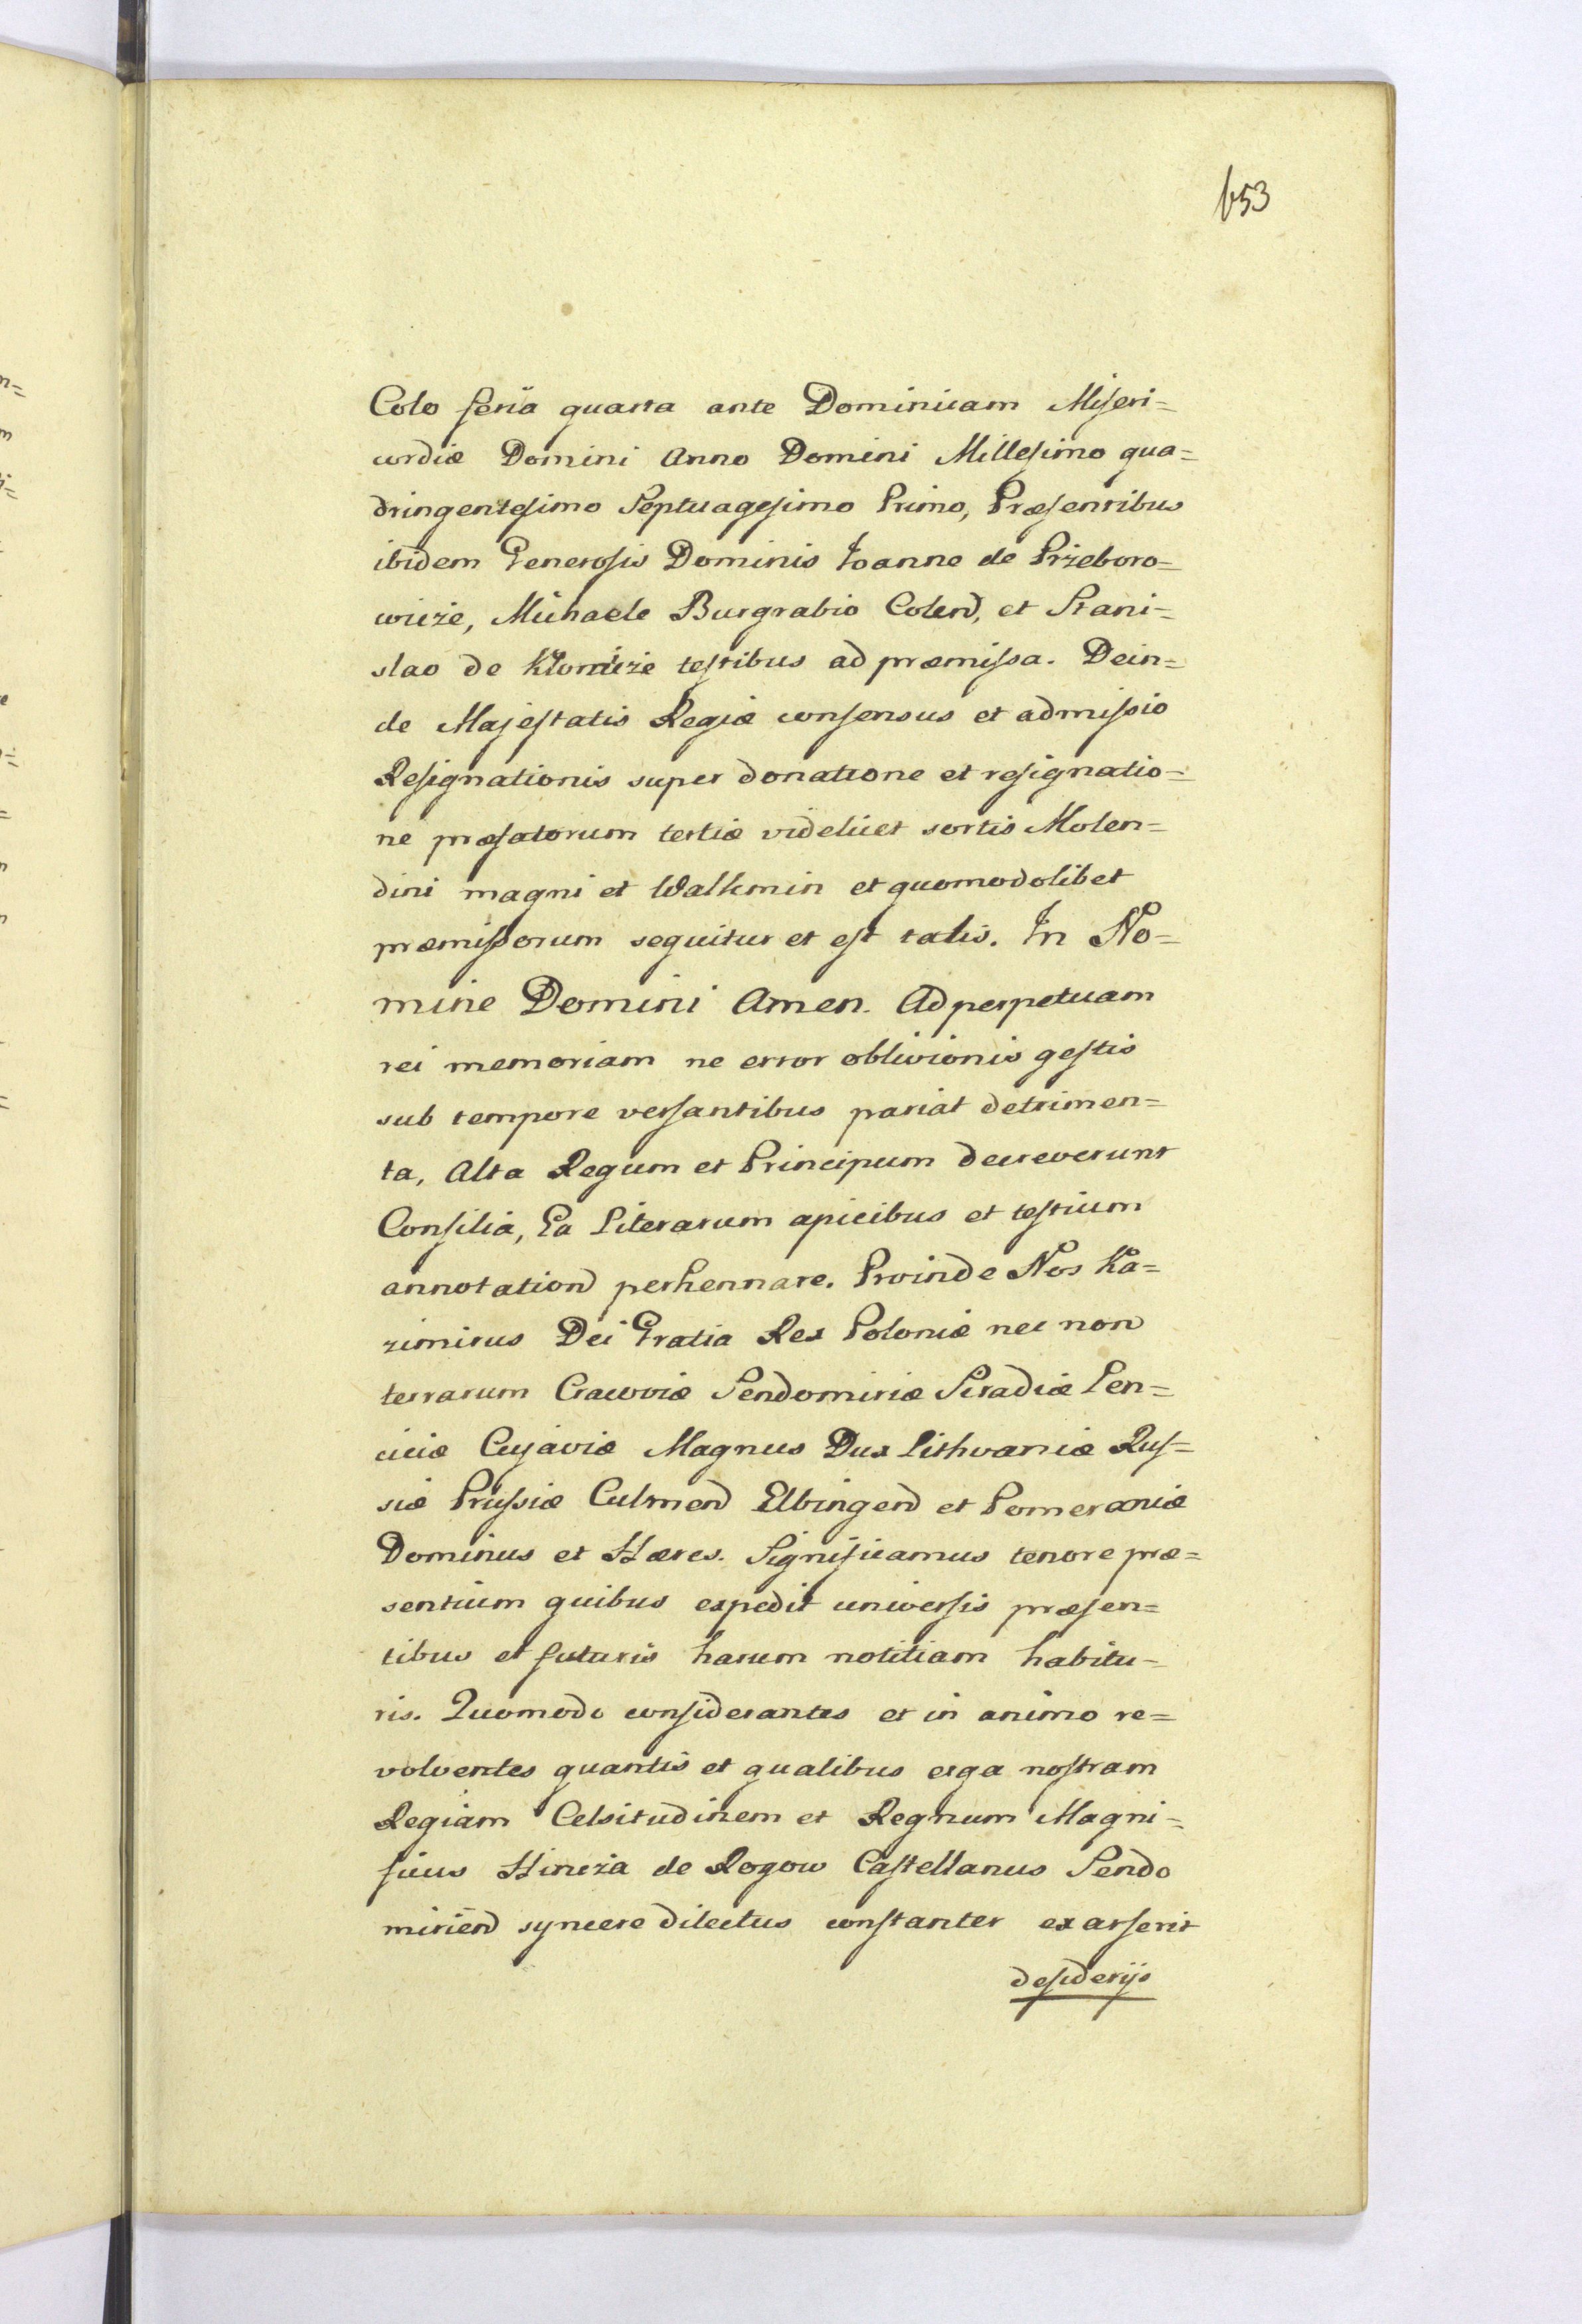 653
Colo feria quarta ante Dominicam Miseri=
cordiæ Domini Anno Domini Millesimo qua=
dringentesimo Septuagesimo Primo, Præsentibus
ibidem Generosis Dominis Joanne de Przeboro=
wicze, Michaele Burgrabio Colen, et Stani=
slao de testibus ad præmissa. Dein=
de Majestatis Regiæ consensus et admissio
Resignationis super donatione et resignatio=
ne præfatorum tertiæ videlicet sortis Molen=
dini magni et Walkmin et quomodolibet
præmissorum sequitur et est talis. In No=
mine Domini Amen. Ad perpetuam
rei memoriam ne error oblivionis gestis
sub tempore versantibus pariat detrimen=
ta, Alta Regum et Principum decreverunt
Consilia, Ea Literarum apicibus et testium
annotation perhennare. Proinde Nos Ka=
zimirus Dei Gratia Rex Poloniæ nec non
terrarum Cracoviæ Sendomiriæ Siradiæ Len=
ciciæ Cujaviæ Magnus Dux Lithvaniæ Rus=
siæ Prussiæ Culmen Elbingen et Pomeraniæ
Dominus et Hæres. Significamus tenore præ=
sentium quibus expedit universis præsen=
tibus et futuris harum notitiam habitu=
ris. Quomodo considerantes et in animo re=
volventes quantis et qualibus erga nostram
Regiam Celsitudinem et Regnum Magni=
ficus Hincza de Rogow Castellanus Sendo
mirien syncere dilectus constanter exarserit
desiderijs